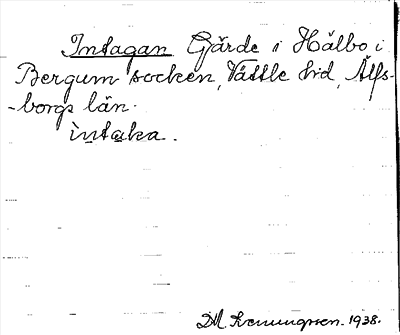 Intagan Gärde i Hålbo i
Bergum socken, Vättle hd, Älfs-
-borgs län.
ìntaka.
DM 1938.